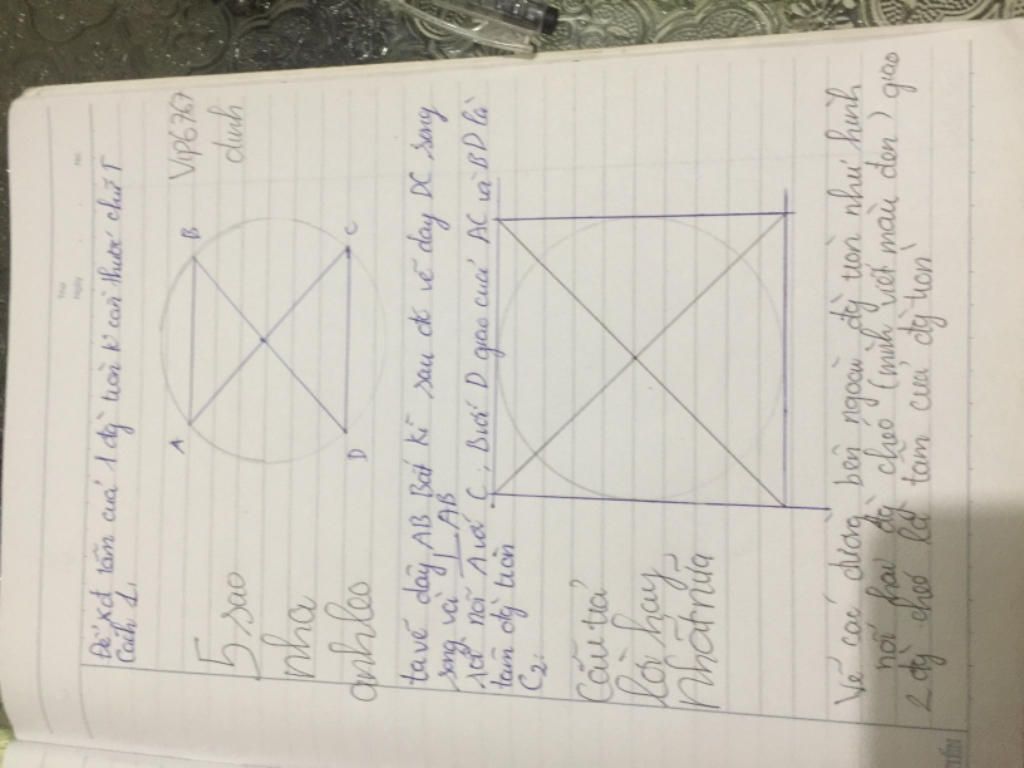 Thứ
Ngày
No:
Để xđ tâm cuả 1 đg tròn k cần thước chữ T
Cách 1.
A
B
C
D
Vip6767
dinh
5 sao
nha
anhloo
ta vẽ dây AB Bất kì sau đó vẽ day DC song
song và ⊥ AB
là nối A với C, B với D giao cuả AC và BD là
tâm đg tròn
C2:
Câu trả
lời hay
nhất nữa
Vẽ các đường bên ngoài đg tròn như hình
nối hai đg chéo (mình viết màu đen) giao
2 đg chéo là tâm cuả đg tròn